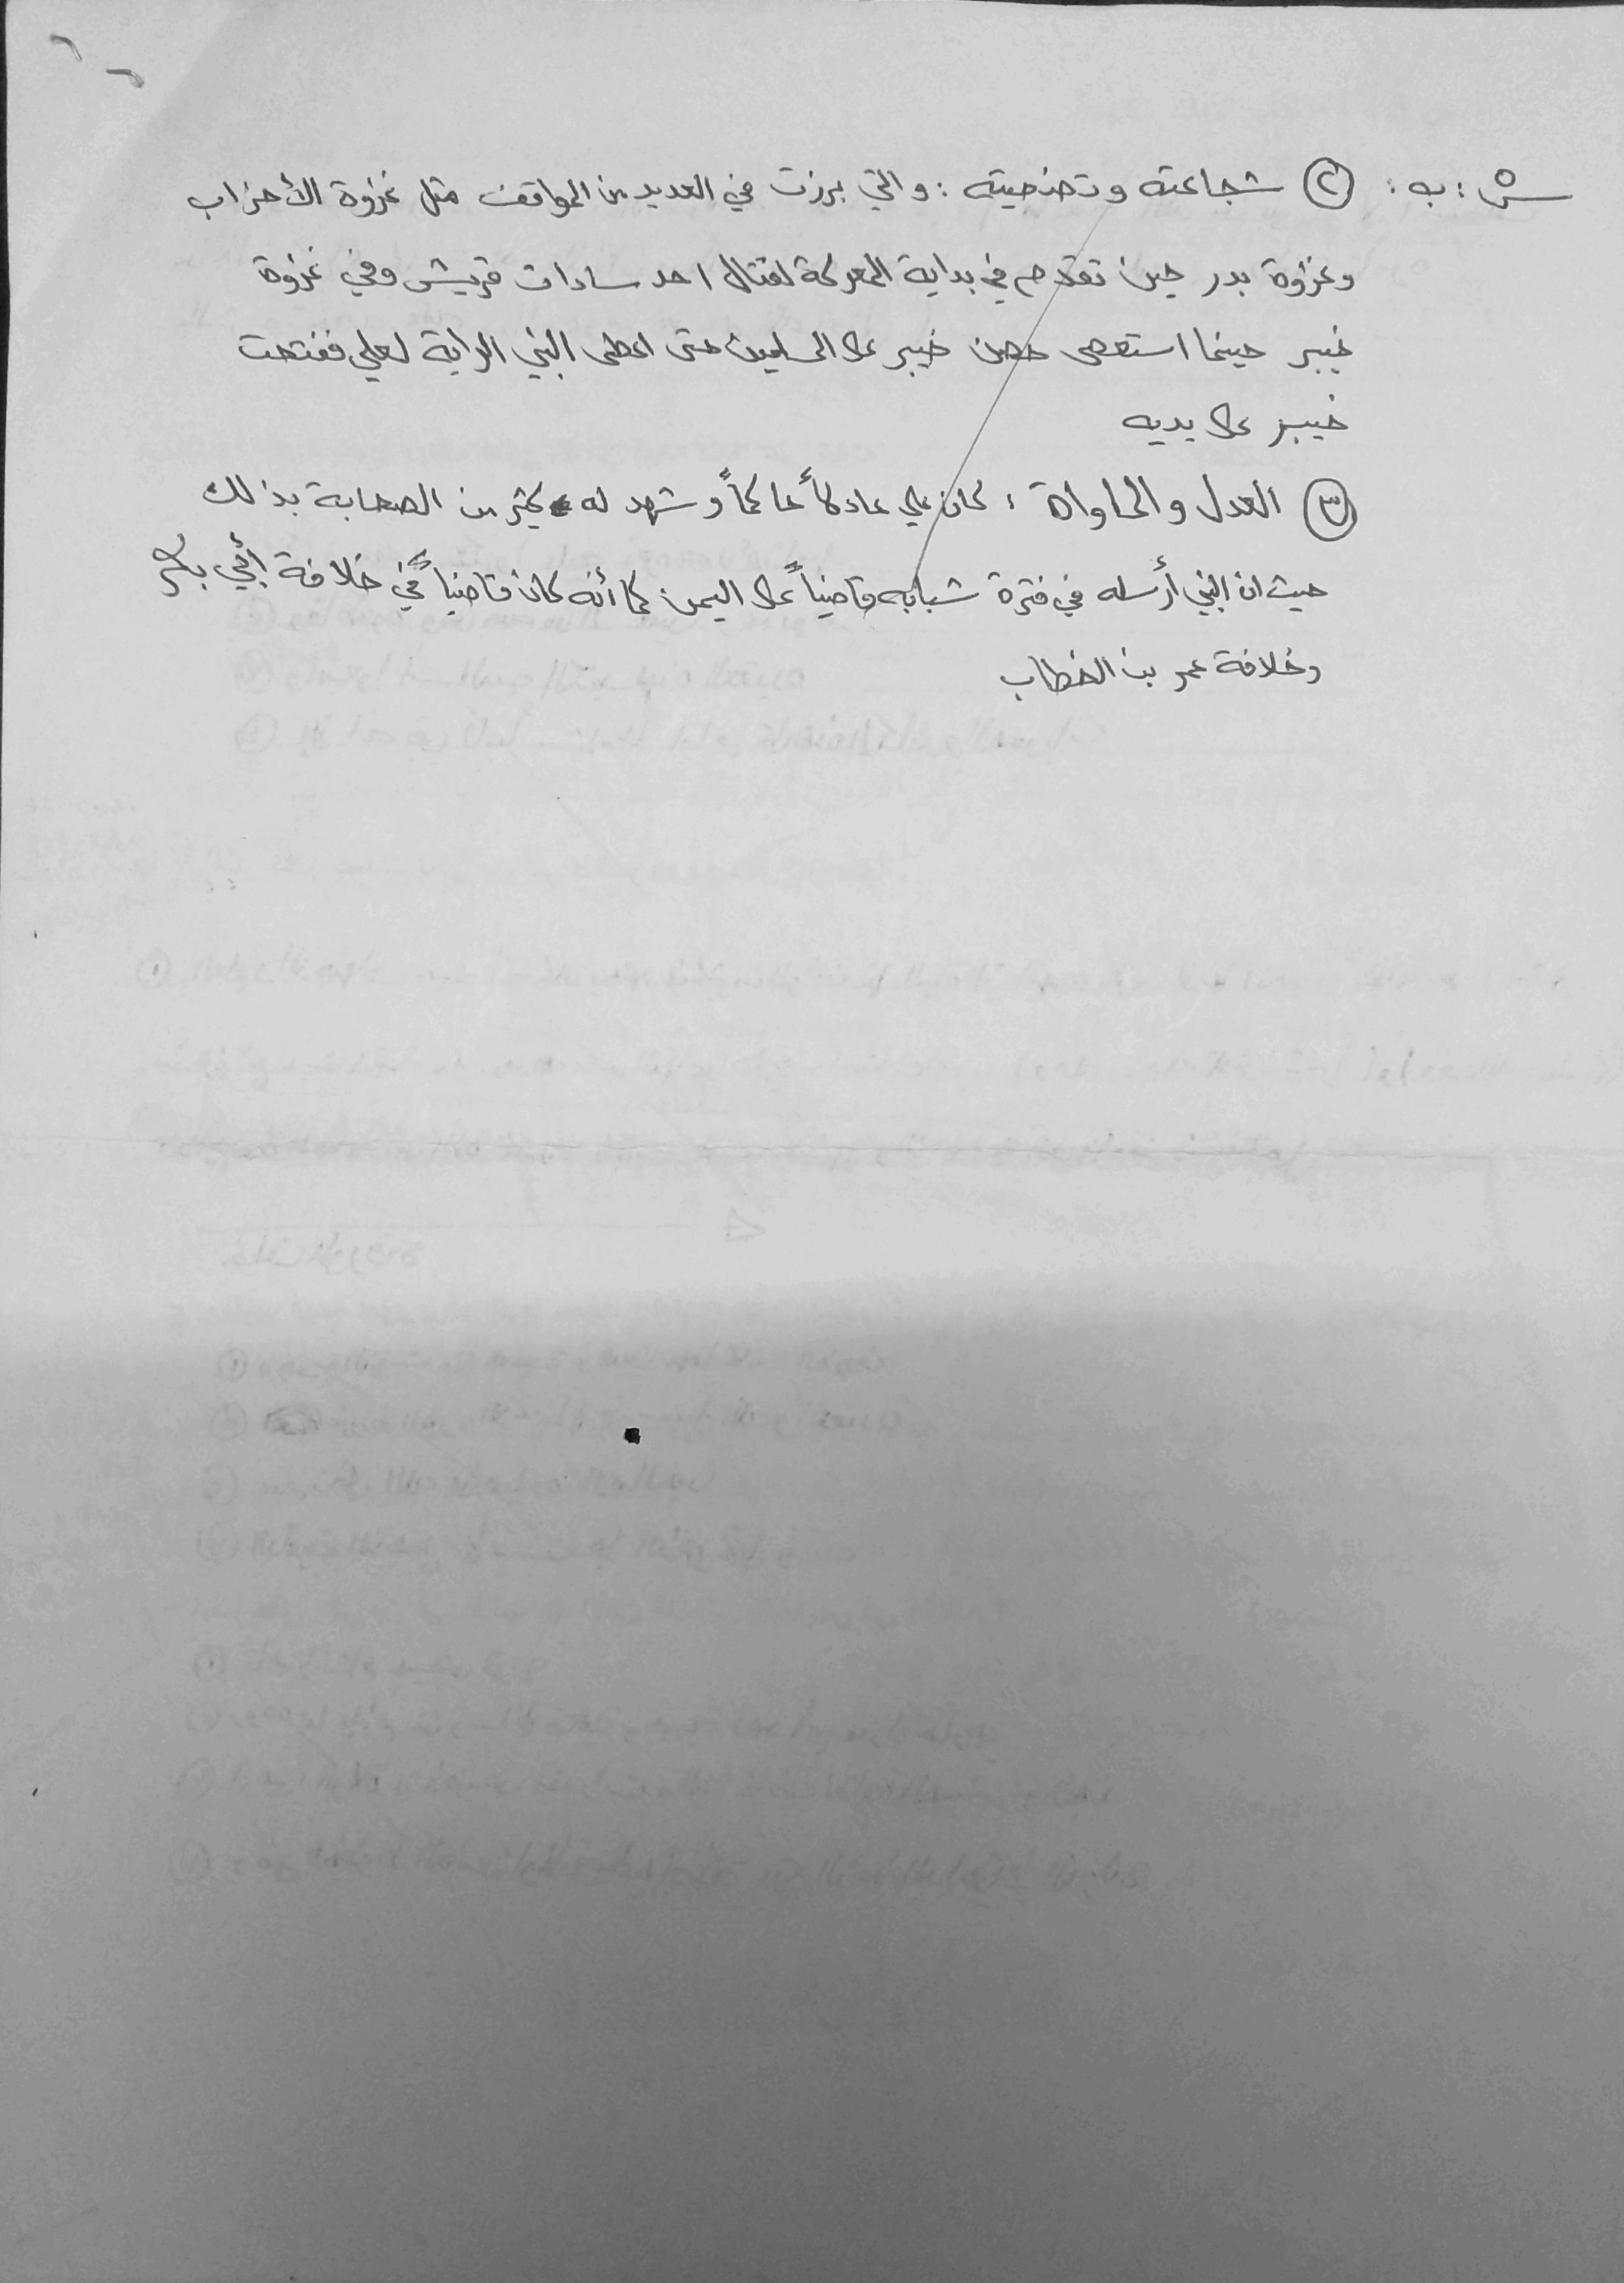 س: ب: ② شجاعته وتضحيته: والتي برزت في العديد من المواقف مثل غزوة الأحزاب
وغزوة بدر حين تقدم في بداية المعركة لقتال احد سادات قريش وفي غزوة
خيبر حينما استعصى حصن خيبر على المسلمين حتى اعطى النبي الراية لعلي ففتحت
خيبر على يديه
③ العدل والمساواة: كان علي عادلاً حاكماً وشهد له كثير من الصحابة بذلك
حيث ان النبي أرسله في فترة شبابه قاضياً على اليمن كما أنه كان قاضياً في خلافة أبي بكر
وخلافة عمر بن الخطاب